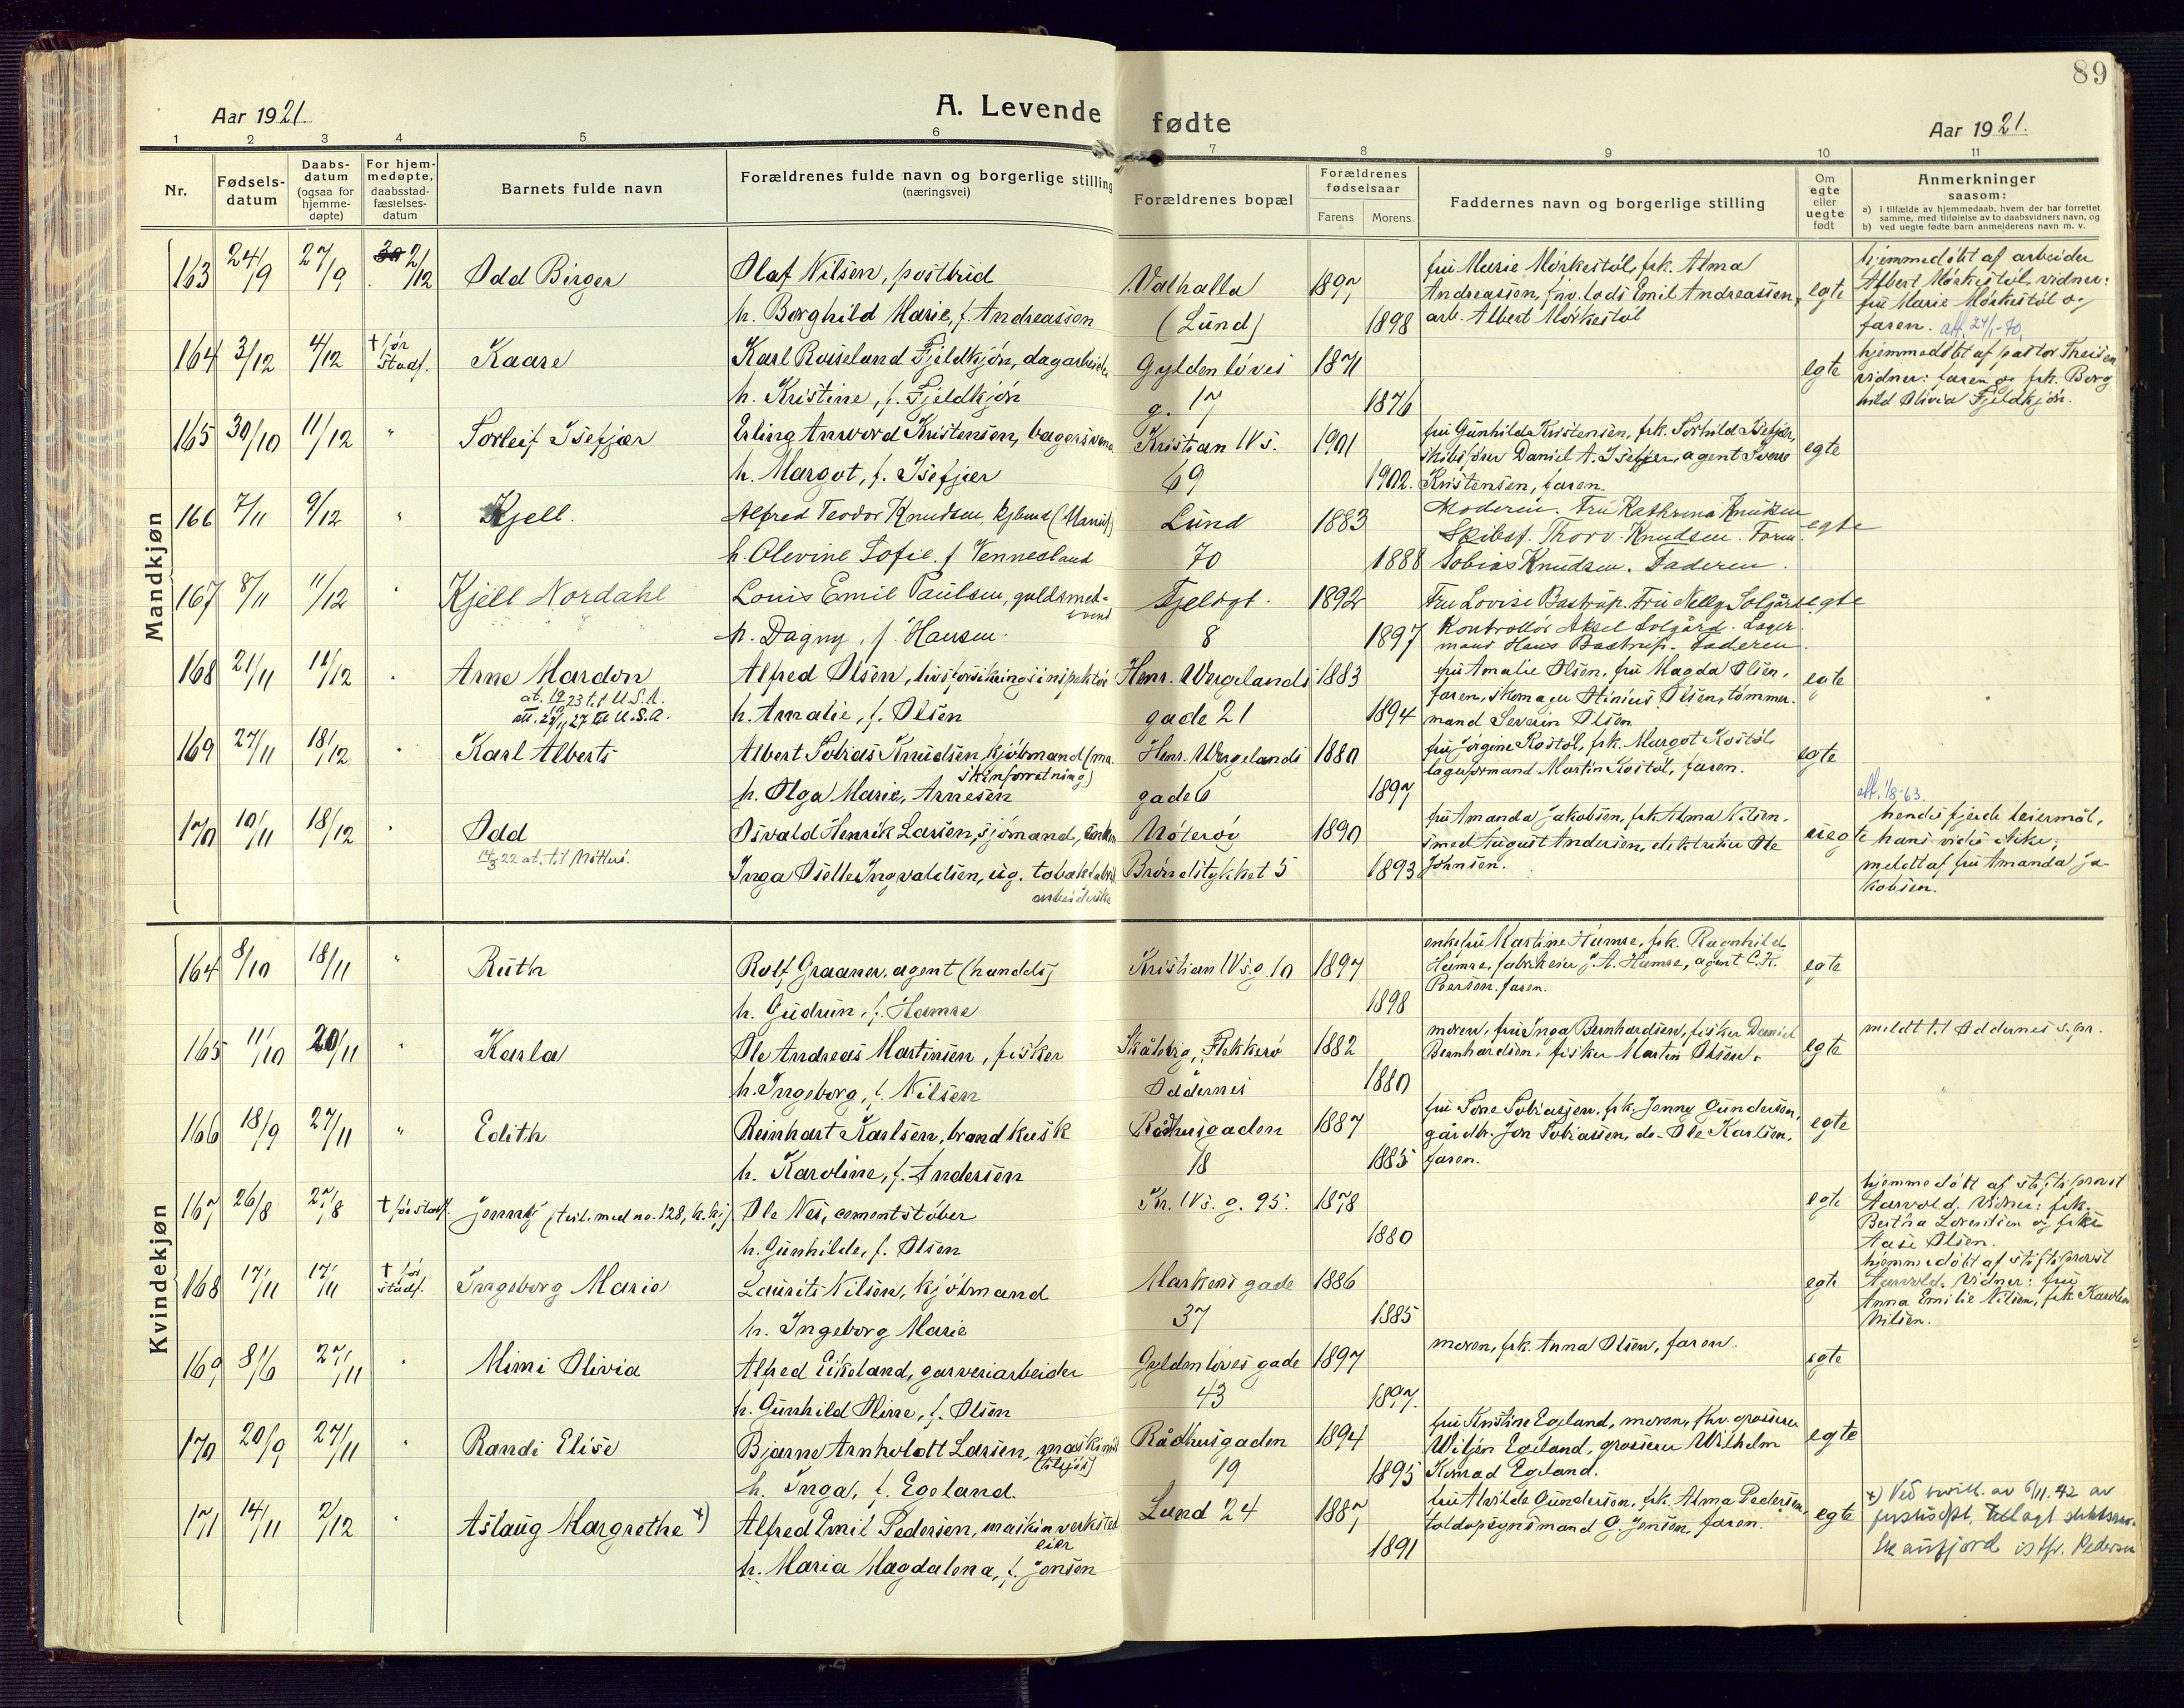 89
Aar 1921.
A. Levende fødte
Aar 1921.
1 2 3 4 5 6 7 8 9 10 11
Nr.
Fødsels-
datum
Daabs-
datum
(ogsaa for
hjemme-
døpte)
For hjem-
medøpte,
daabsstad-
fæstelses-
datum
Barnets fulde navn
Forældrenes fulde navn og borgerlige stilling
(næringsvei)
Forældrenes bopæl
Forældrenes
fødselsaar
Farens Morens
Faddernes navn og borgerlige stilling
Om
egte
eller
uegte
født
Anmerkninger
saasom:
a) i tilfælde av hjemmedaab, hvem der har forrettet
samme, med tilføielse av to daabsvidners navn, og
b) ved uegte fødte barn anmelderens navn m. v.
Mandkjøn
163 24/9 27/9 2/12 Odd Birger
Olaf Nilsen, postbud
h. Borghild Marie, f. Andreassen
Valhalla
(Lund)
1897
1898
fru Marie Mørkestøl, frk. Alma
Andreassen, fhv. lods Emil Andreassen,
arb. Albert Mørkestøl
egte
hjemmedøbt af arbeider
Albert Mørkestøl, vidner:
fru Marie Mørkestøl og
faren. att. 24/1-70
164 3/12 4/12 † før
stadf.
Kaare
Karl Roiseland Fjeldkjøn, dagarbeider
h. Kristine, f. Fjeldkjøn
Gyldenløves
g. 17
1871
1876
egte
hjemmedøbt af pastor Theisen
vidner: faren og frk. Borg
hild Olivia Fjeldkjøn.
165 30/10 11/12 " Torleif Isefjær
Erling Annvord Kristensen, bagersvend
h. Margot, f. Isefjær
Kristian IVs.
69
1901
1902.
fru Gunhilda Kristensen, frk. Torhild Isefjær,
skibsfører Daniel A. Isefjær, agent Sverre
Kristensen, faren.
egte
166 7/11 9/12 " Kjell.
Alfred Teodor Knudsen, kjbmd (Manuf)
h. Olevine Sofie f. Vennesland
Lund
70
1883
1888
Moderen. Fru Kathrina Knudsen
Skibsf. Thorv. Knudsen. Form.
Tobias Knudsen. Faderen.
egte
167 8/11 11/12 " Kjell Nordahl
Louis Emil Paulsen, guldsmed-
svend
h. Dagny, f. Hansen.
Fjeldgt.
8
1892
1897
Fru Lovise Bastrup. Fru Nelly Solgård
Kontrollør Aksel Solgård. Lager
mand Hans Bastrup. Faderen.
egte
168 21/11 12/12 " Arne Mardon
at. 19/10 23 til U.S.A.
att. 29/11 27 til U.S.A.
Alfred Olsen, livsforsikringsinspektør
h. Amalie, f. Olsen
Henr. Wergelands
gade 21
1883
1894
fru Amalie Olsen, fru Magda Olsen,
faren, skomager Hinius Olsen, tømmer-
mand Severin Olsen
egte
169 27/11 18/12 " Karl Alberts
Albert Tobias Knudsen, kjøbmand (ma-
skinforretning)
h. Olga Marie, Arnesen
Henr. Wergelands
gade 6
1880
1897
fru Jørgine Rostøl, frk. Margot Rostøl,
lagerformand Martin Rostøl, faren.
egte
att. 1/8-63.
170 10/11 18/12 " Odd
14/3 22 at. til Nøtterø.
Osvald Henrik Larsen, sjømand, enkem
Inga Oselle Ingvaldsen, ug. tobakfabrik
arbeiderske
Nøterøy
Brøndstykket 5
1890
1893
fru Amanda Jakobsen, frk. Alma Nilsen,
smed August Andersen, elektriker Ole
Johnsen.
uegte
hendes fjerde leiermål,
hans vides ikke;
meldt af fru Amanda Ja-
kobsen.
Kvindekjøn
164 8/10 18/11 " Ruth
Rolf Graaner, agent (handels)
h. Gudrun, f. Hamre
Kristian IVs. g. 10
1897
1898
enkefru Martine Hamre, frk. Ragnhild
Hamre, fabrikeier J. A. Hamre, agent C. K.
Roersen, faren.
egte
165 11/10 20/11 " Karla
Ole Andreas Martinsen, fisker
h. Ingeborg, f. Nilsen
Skålevig, Flekkerø
Oddernes
1882
1880
moren, fru Inga Bernhardsen, fisker Daniel
Bernhardsen, fisker Martin Olsen.
egte
meldt til Oddernes s.pr.
166 18/9 27/11 " Edith
Reinhart Karlsen, brandkusk
h. Karoline, f. Andersen
Rådhusgaden
18
1887
1885
fru Tone Tobiassen, frk. Jenny Gundersen,
gårdbr. Jon Tobiassen, do- Ole Karlsen,
faren.
egte
167 26/8 27/8 † før stadf. Jenny (tvil. med no. 128, h. kj)
Ole Nes, cementstøber
h. Gunhilde, f. Olsen
Kr. IVs. g. 95.
1878
1880
egte
hjemmedøbt af stiftsprovst
Aarvold. Vidner: frk.
Bertha Lorentsen og frk.
Aase Olsen.
168 17/11 17/11 † før
stadf.
Ingeborg Marie
Laurits Nilsen, kjøbmand
h. Ingeborg Marie
Markens gade
37
1886
1885
egte
hjemmedøbt af stiftsprovst
Aarvold. Vidner: fru
Anna Emilie Nilsen, frk. Karoline
Nilsen.
169 8/6 27/11 " Mimi Olivia
Alfred Eikeland, garveriarbeider
h. Gunhild Oline, f. Olsen
Gyldenløves gade
43
1897
1897.
moren, frk. Anna Olsen, faren.
egte
170 20/9 27/11 " Randi Elise
Bjarne Arnholdt Larsen, maskinist
(tilsjøs)
h. Inga, f. Egeland.
Rådhusgaden
19
1894
1895
fru Kristine Egeland, moren, fhv. grosserer
Wiljen Egeland, grosserer Wilhelm
Konrad Egeland.
egte
171 14/11 2/12 " Aslaug Margrethe x)
Alfred Emil Pedersen, maskinverksted
eier
h. Maria Magdalena, f. Jensen
Lund 24
1887
1891
fru Alvilde Gundersen, frk. Alma Pedersen,
toldopsynsmand G. Jensen, faren.
egte
x) Ved bevill. av 6/11.42 av
justisdept, tillagt slektsnavn.
Skaufjord istf. Pedersen